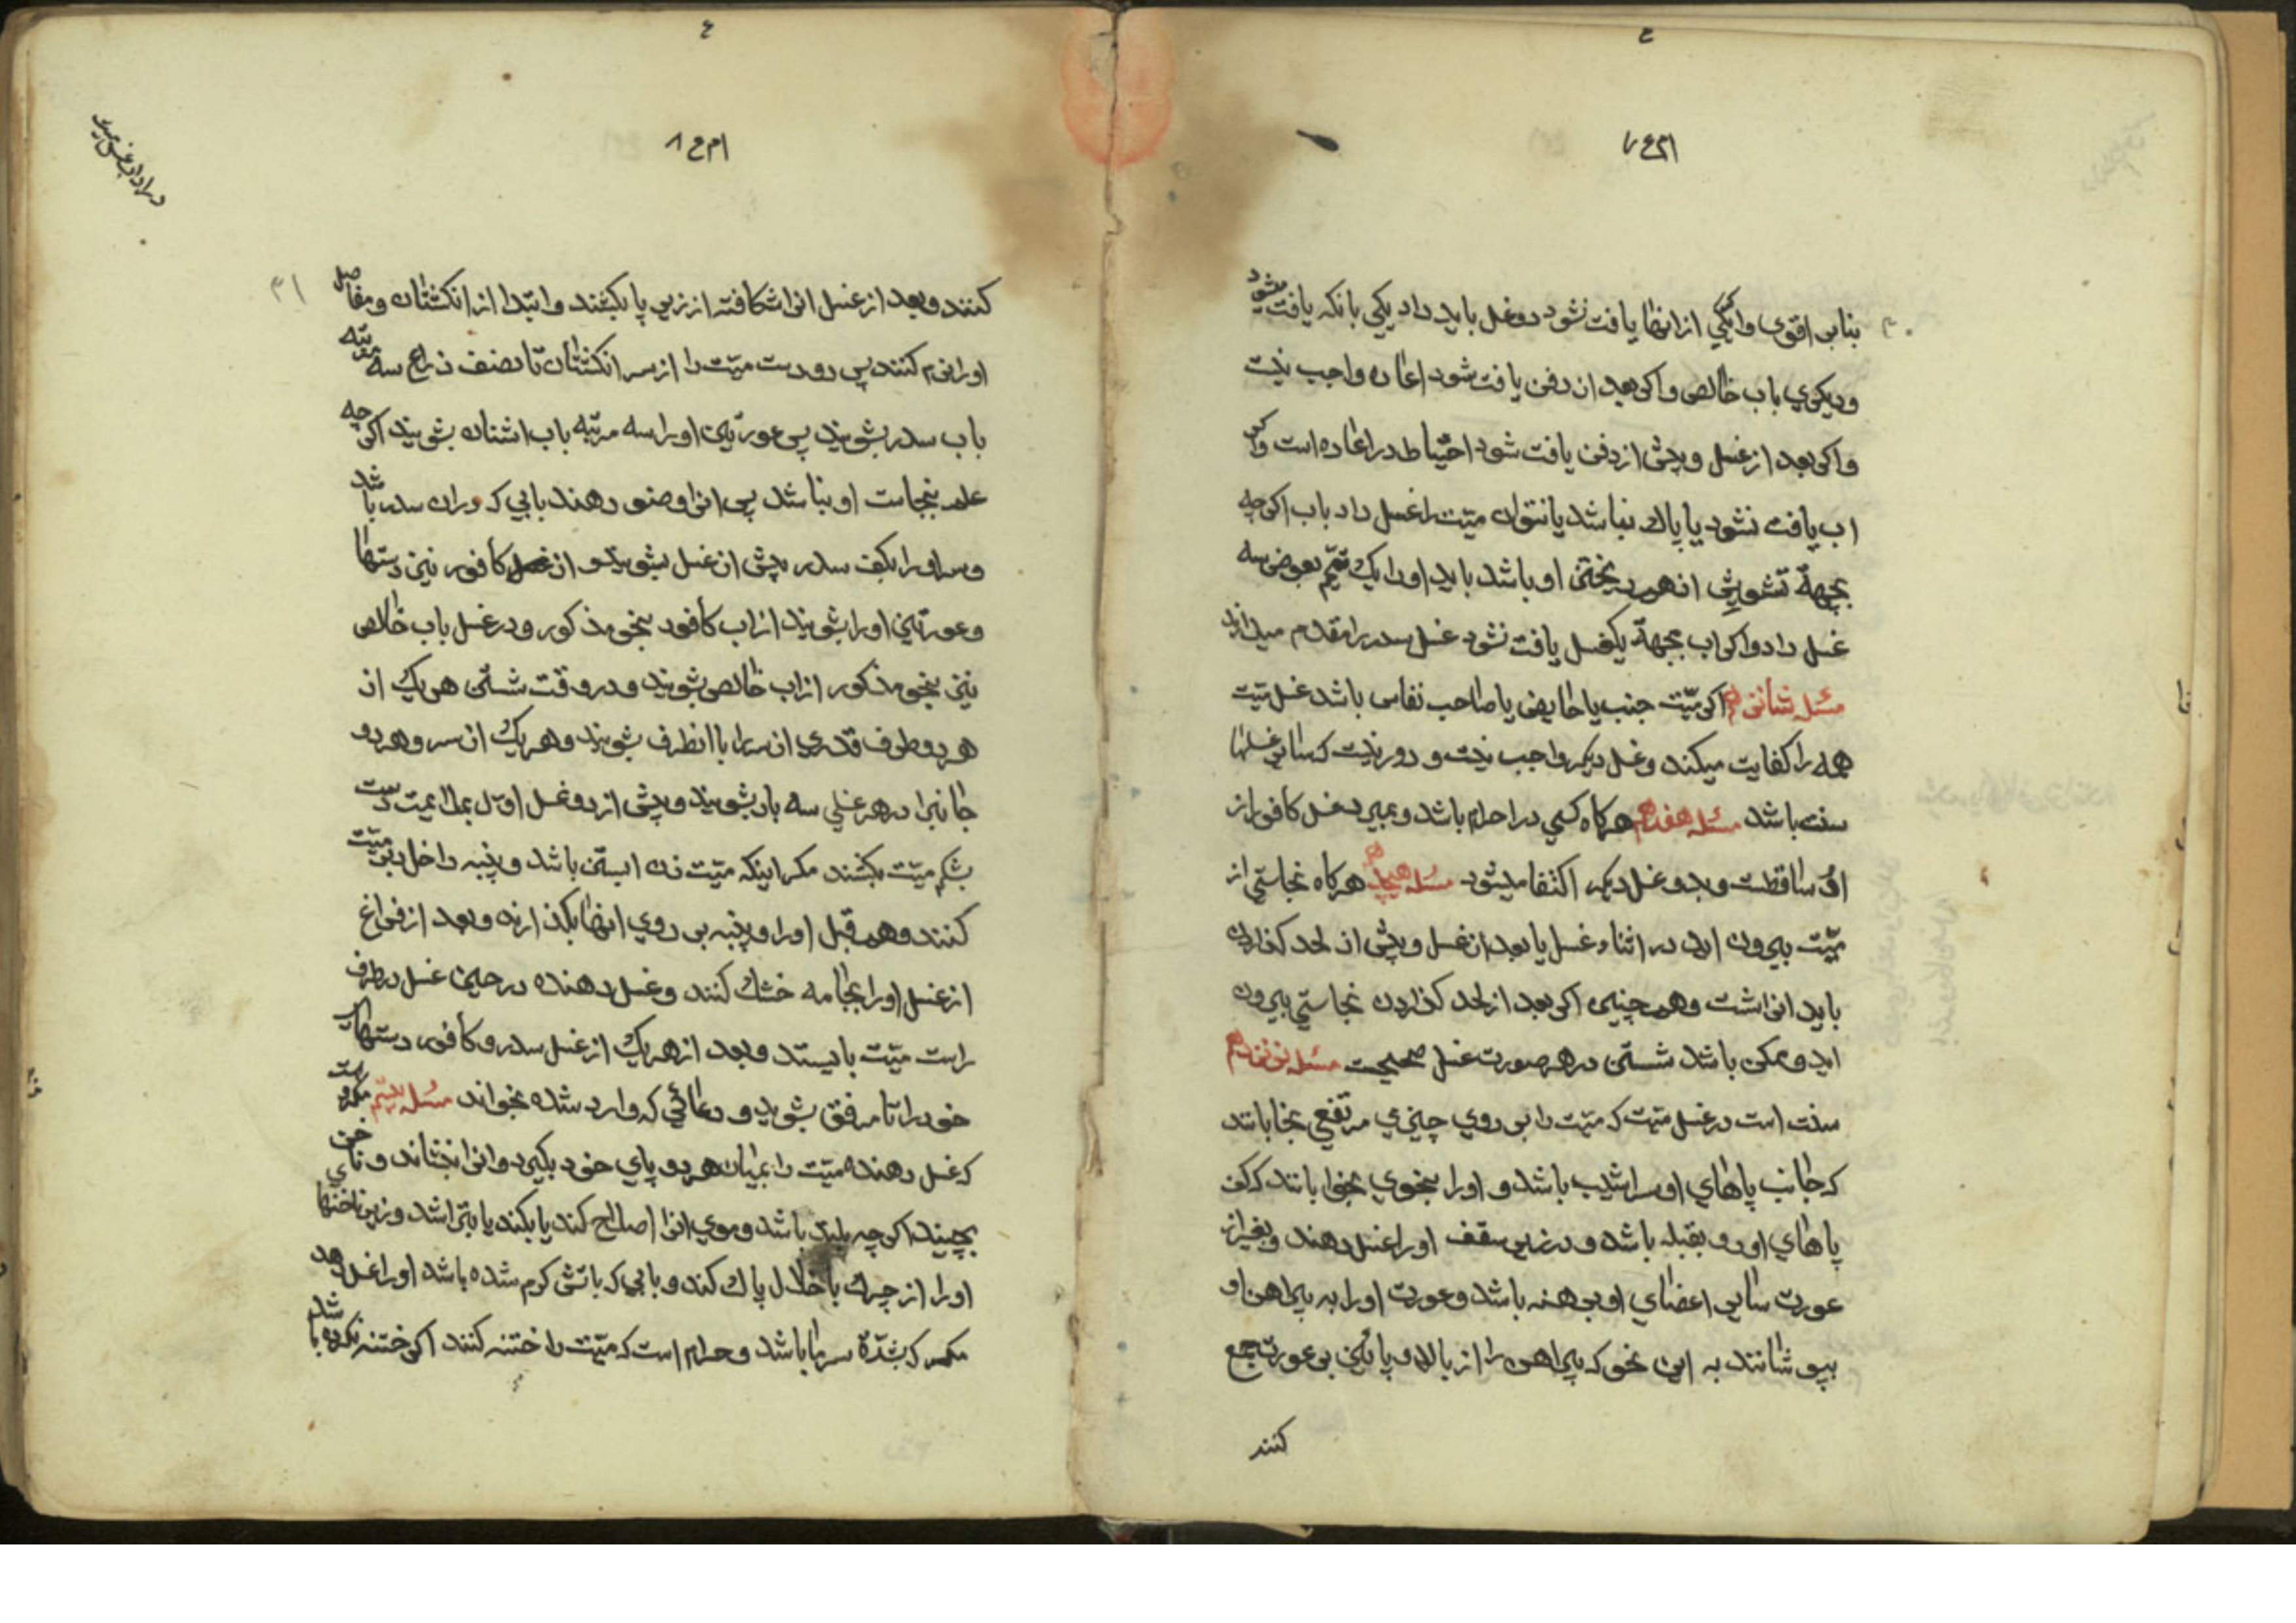 بنابر اقوی و اکر یکی از انها یافت نشود دو غسل باید داد یکی بانکه یافت میشود
و دیکری باب خالص و اکر بعد از دفن یافت شود اعاده واجب نیست
و اکر بعد از غسل و پیش از دفن یافت شود احتیاط در اعاده است و اکر
اب یافت نشود یا پاك نباشد یا نتوان میّت را غسل داد باب اکرچه
بجهة تشویش از هم ریختن او باشد باید او را یك تیمّم بعوض سه
غسل داد و اکر اب بجهة یکغسل یافت نشود غسل سدر را مقدم میدارند
مسئله شانزدهم اکر میّت جنب یا حایض یا صاحب نفاس باشد غسل میّت
همه را کفایت میکند و غسل دیکر واجب نیست و دور نیست که سایر غسلها
سنت باشد مسئله هفدهم هرکاه کسی در احرام باشد و بمیرد غسل کافور از
او ساقطست و بدو غسل دیکر اکتفا میشود مسئله هیجدهم هرکاه نجاستی از
میّت بیرون اید در اثناء غسل یا بعد از غسل و پیش از لحد کذاردن
باید انرا شست و همچنین اکر بعد از لحد کذاردن نجاستی بیرون
اید و ممکن باشد شستن در هر صورت غسل صحیحست مسئله نوزدهم
سنت است در غسل میّت که میّت را بر روی چیزی مرتفع بخابانند
که جانب پاهای او سراشیب باشد و او را بنحوی بخوابانند که کف
پاهای او رو بقبله باشد و در زیر سقف او را غسل دهند و بغیر از
عورت سایر اعضای او برهنه باشد و عورت او را به پیراهن او
بپوشانند به این نحو که پیراهن را از بالا و پایین بر عورت جمع
کنند
کنند و بعد از غسل انرا شکافته از زیر پا بکشند و ابتدا از انکشتان و مفاصل
او را نرم کنند پس دو دست میّت را از سر انکشتان تا نصف ذراع سه مرتبه
باب سدر بشویند پس عورتین او را سه مرتبه باب اشنان بشویند اکرچه
علم بنجاست او نباشد پس انرا وضو دهند بابی که در ان سدر باشد
و سر او را بکف سدر پیش از غسل بشویند و از غسل کافور نیز دستها
و عورتین او را بشویند از اب کافور بنحو مذکور و در غسل باب خالص
نیز بنحو مذکور از اب خالص بشویند و در وقت شستن هر یك از
هر دو طرف قدری از سر را با انطرف بشویند و هر یك از سر و هر دو
جانبرا در هر غسلی سه بار بشویند و پیش از دو غسل اول بملایمت دست
بشکم میّت بکشند مکر اینکه میّت زن ابستن باشد و پنبه داخل دبر میّت
کنند و هم قبل او را و پنبه بر روی انها بکذارند و بعد از فراغ
از غسل او را بجامه خشك کنند و غسل دهنده در حین غسل در طرف
راست میّت بایستد و بعد از هر یك از غسل سدر و کافور دستهای
خود را تا مرفق بشوید و دعائی که وارد شده بخواند مسئله بیستم مکروه است
که غسل دهنده میّت را بمیان هر دو پای خود بکیرد و انرا بنشاند و ناخن
بچیند اکرچه بلند باشد و موی انرا اصلاح کند یا بکند یا بتراشد و زیر ناخنهای
او را از چرك با خلال پاك کند و بابی که باتش کرم شده باشد او را غسل دهد
مکر که شدّة سرما باشد و حرام است که میّت را ختنه کنند اکر ختنه نکرده باشد